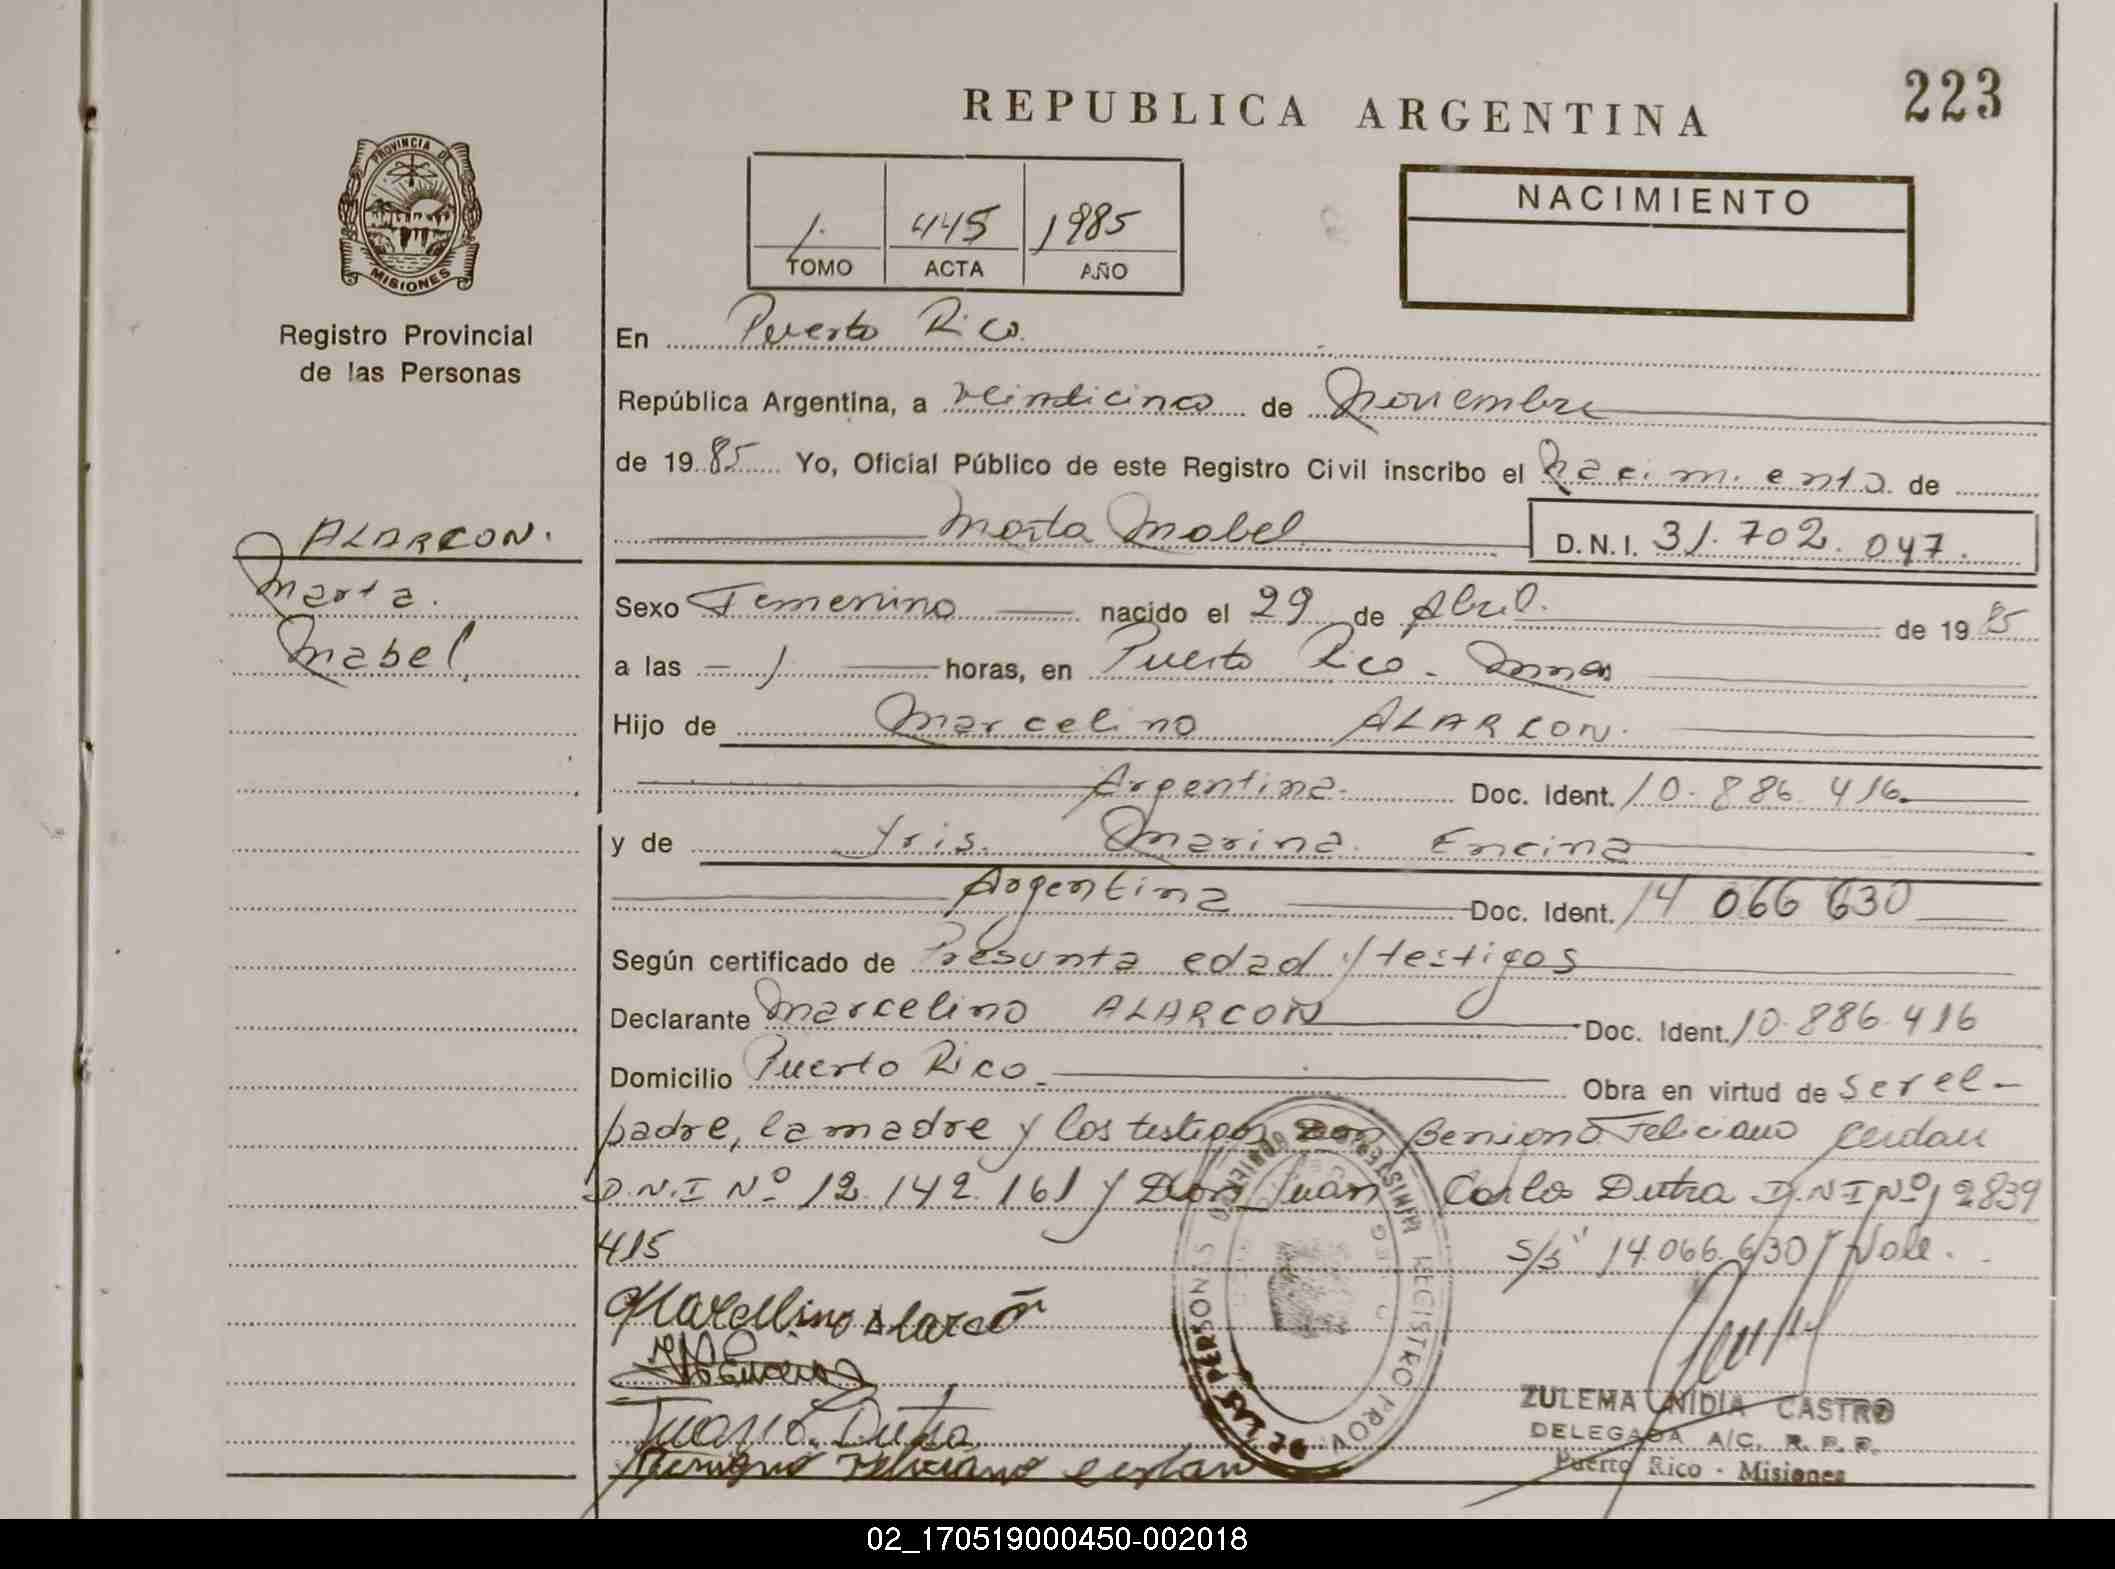 223
REPUBLICA ARGENTINA
PROVINCIA DE
MISIONES
Registro Provincial
de las Personas
1. 445 1985
TOMO ACTA AÑO
NACIMIENTO
En Puerto Rico.
República Argentina, a veindicinco de Noviembre
de 1985 Yo, Oficial Público de este Registro Civil inscribo el Nacimiento de
ALARCON.
Marta
Mabel
Marta Mabel D.N.I. 31.702.047.
Sexo Femenino nacido el 29 de Abril. de 1985
a las 1 horas, en Puerto Rico - Mnes
Hijo de Marcelino ALARCON.
Argentina. Doc. Ident. 10.886.416.
y de Yris Marina Encina
Argentina Doc. Ident. 14 066 630
Según certificado de Presunta edad y testigos
Declarante Marcelino ALARCON Doc. Ident. 10.886.416
Domicilio Puerto Rico Obra en virtud de ser el
padre, la madre y los testigos Don Benigno Feliciano Cerdan
D.N.I Nº 12.142.161 y Don Juan Carlos Dutra D.N.I Nº 12839
415 S/s 14.066.630 Vale.
Marcellino Alarcón
Juan C. Dutra
Benigno Feliciano Cerdan
REGISTRO PROV. DE LAS PERSONAS
ZULEMA NIDIA CASTRO
DELEGADA A/C. R. P. P.
Puerto Rico - Misiones
02_170519000450-002018